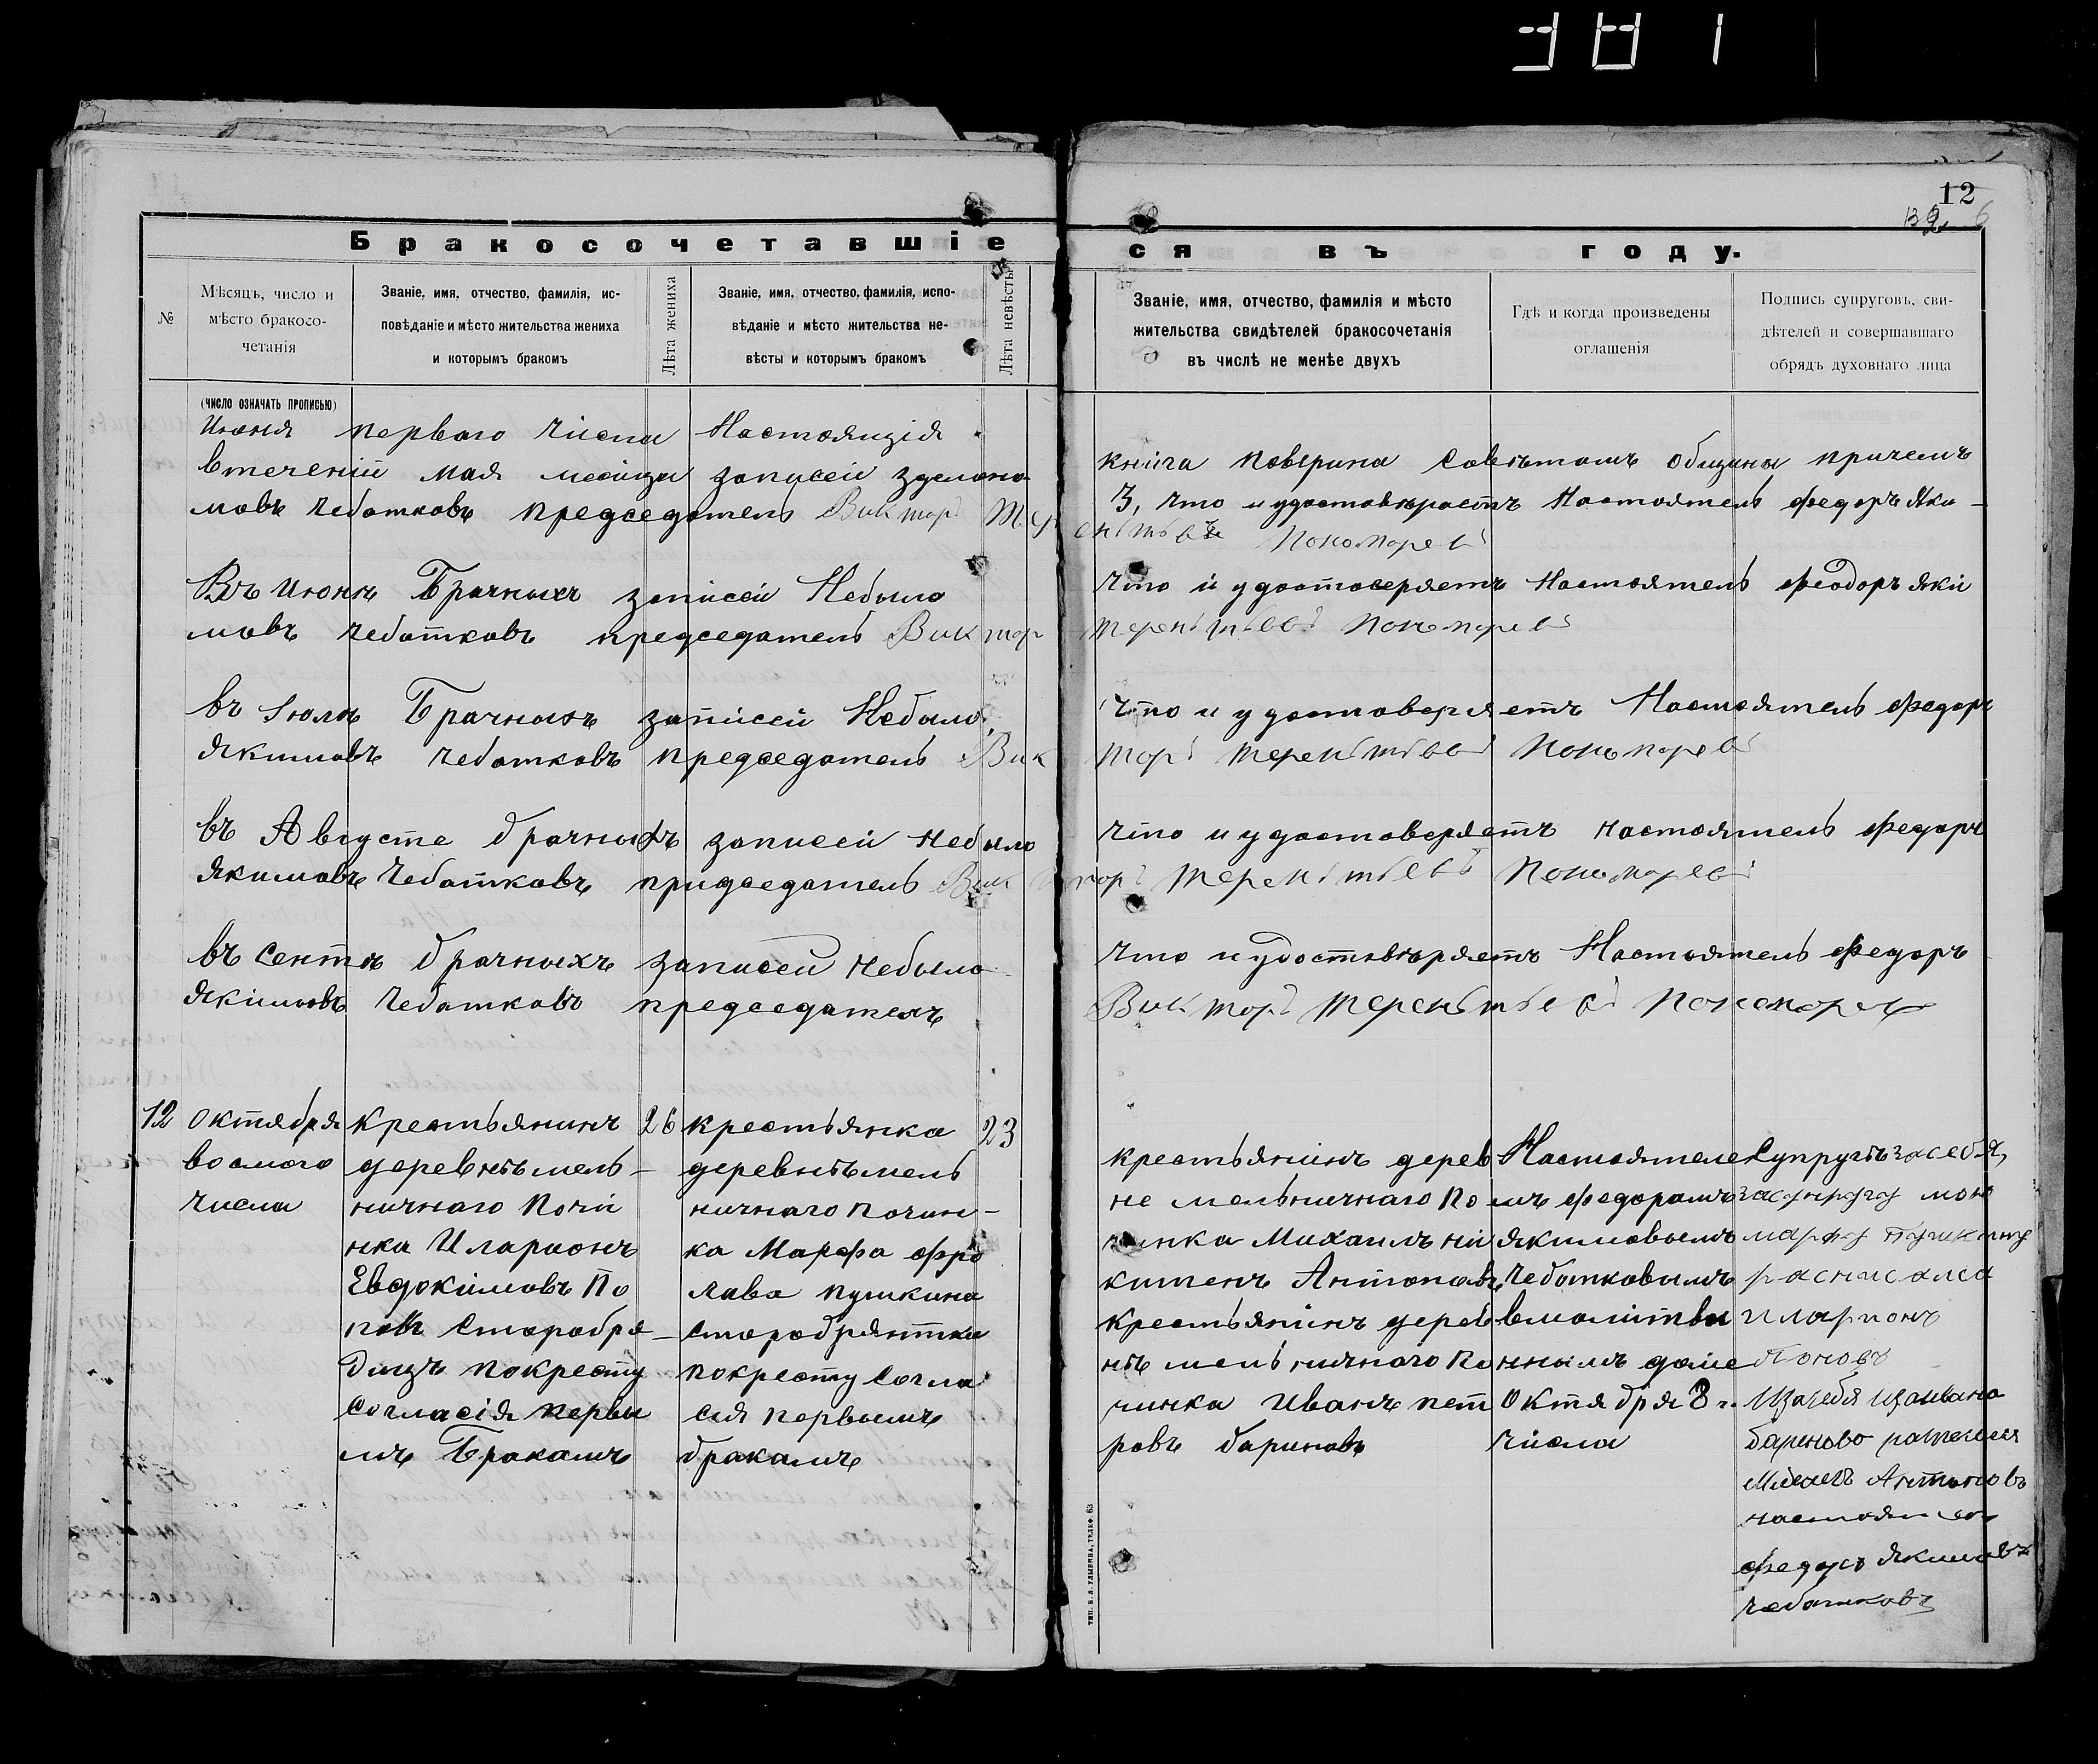 12
Бракосочетавшіе
ся въ году.
№
Мѣсяцъ, число и
мѣсто бракосо-
четанія
Званіе, имя, отчество, фамилія, ис-
повѣданіе и мѣсто жительства жениха
и которымъ бракомъ
Лѣта жениха
Званіе, имя, отчество, фамилія, испо-
вѣданіе и мѣсто жительства не-
вѣсты и которымъ бракомъ
Лѣта невѣсты
Званіе, имя, отчество, фамилія и мѣсто
жительства свидѣтелей бракосочетанія
въ числѣ не менѣе двухъ
Гдѣ и когда произведены
оглашенія
Подпись супруговъ, сви-
дѣтелей и совершавшаго
обрядъ духовнаго лица
(ЧИСЛО ОЗНАЧАТЬ ПРОПИСЬЮ)
Июня перваго числа Настоящія книга поверина Советомъ общины причемъ
втеченіи мая месица записей зделоно 3, что и удостовѣраетъ Настоятель федоръ Яки-
мовъ Чеботковъ председатель Виктор Терентьевъ Пономорев
Въ июнѣ Брачныхъ записей Небыло что и удостоверяетъ Настоятель феодоръ Яки
мовъ Чеботковъ председатель Виктор Терентьев Пономорев
въ Iюлѣ Брачныхъ записей Небыло что и удостоверяетъ Настоятель федоръ
Якимовъ Чеботковъ председатель Виктор Терентьев Пономорев
въ Августе брачныхъ записей небыло что и удостоверяетъ настоятель федоръ
Якимовъ Чеботковъ придседатель Виктор Терентьевъ Пономорев
въ Сентя брачныхъ записей небыло что и удостовѣряетъ Настоятель федоръ
Якимовъ Чеботковъ председатель Виктор Терентьев Пономорев
12
октября
восмого
числа
крестьянинъ
деревнѣ мель-
ничнаго Почи
нка Иларионъ
Евдокимовъ По
повъ Старобря-
дицъ покресту
согласія первы
мъ Бракамъ
26
крестьянка
деревнѣ мель
ничнаго почин-
ка Марфа фро
лава пушкина
старобрятка
покресту Согла
сія первымъ
бракамъ
23
крестьянинъ дерев
не мельничнаго по
чинка Михаилъ ни
китенъ Антоновъ
крестьянинъ дерев
нѣ мельничнаго По
чинка Иванъ пет
ровъ бариновъ
Настоятеле
мъ федорамъ
Якимовымъ
Чеботковымъ
вмолитве
нномъ доме
Октября 8 г.
числа
Супругъ засебя,
засупругу мою
марфу Пушкину
расписался
иларионъ
Поновъ
Изасебя изаивана
бариново
Антоновъ
настоятель
федоръ Якимовъ
Чеботковъ